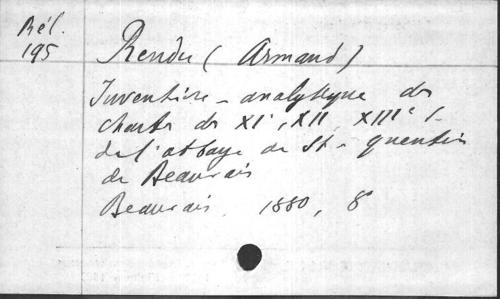 Rél.
195
Rendu (Armand)
Inventaire-analytique des
chartes des XIe, XII, XIIIe s.
de l'abbaye de St-quentin
de Beauvais
Beauvais, 1880, 8°